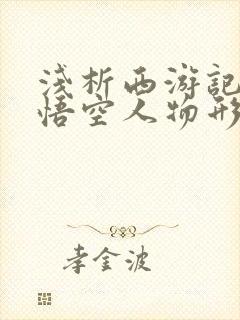 浅析西游記
悟空人物形
李金波